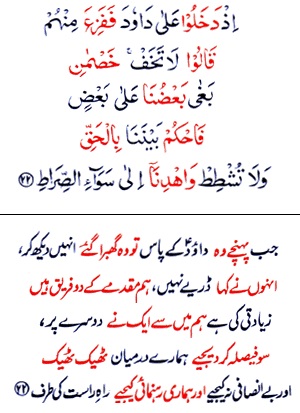 اِذْ دَخَلُوْا عَلٰى دَاوٗدَ فَفَزِعَ مِنْهُمْ
قَالُوْا لَا تَخَفْ ۚ خَصْمٰنِ
بَغٰى بَعْضُنَا عَلٰى بَعْضٍ
فَاحْكُمْ بَيْنَنَا بِالْحَقِّ
وَلَا تُشْطِطْ وَاهْدِنَاۤ اِلٰى سَوَآءِ الصِّرَاطِ ﴿۲۲﴾
جب پہنچے وہ داؤدؑ کے پاس تو وہ گھبرا گئے انہیں دیکھ کر،
انہوں نے کہا ڈریے نہیں، ہم مقدمے کے دو فریق ہیں
زیادتی کی ہے ہم میں سے ایک نے دوسرے پر،
سو فیصلہ کر دیجیے ہمارے درمیان ٹھیک ٹھیک
اور بے انصافی نہ کیجیے اور ہماری رہنمائی کیجیے راہِ راست کی طرف ﴿۲۲﴾